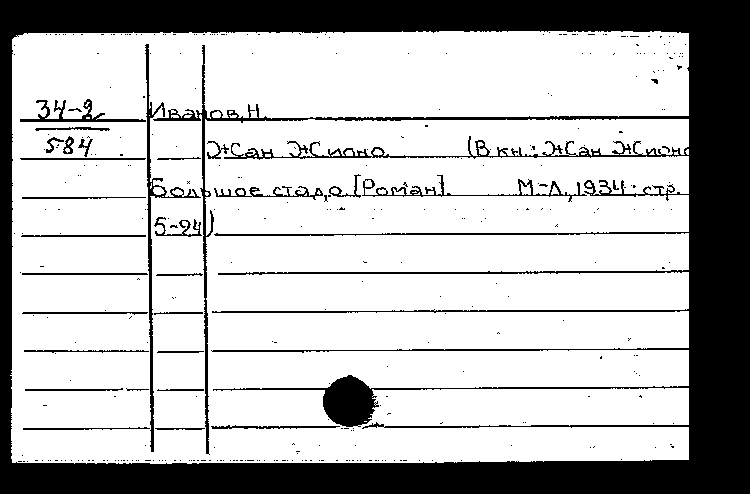 34-2 Иванов, Н.
584 Жан Жионо. (В кн.: Жан Жионо
Большое стадо [Роман]. М-Л, 1934: стр.
5-24)